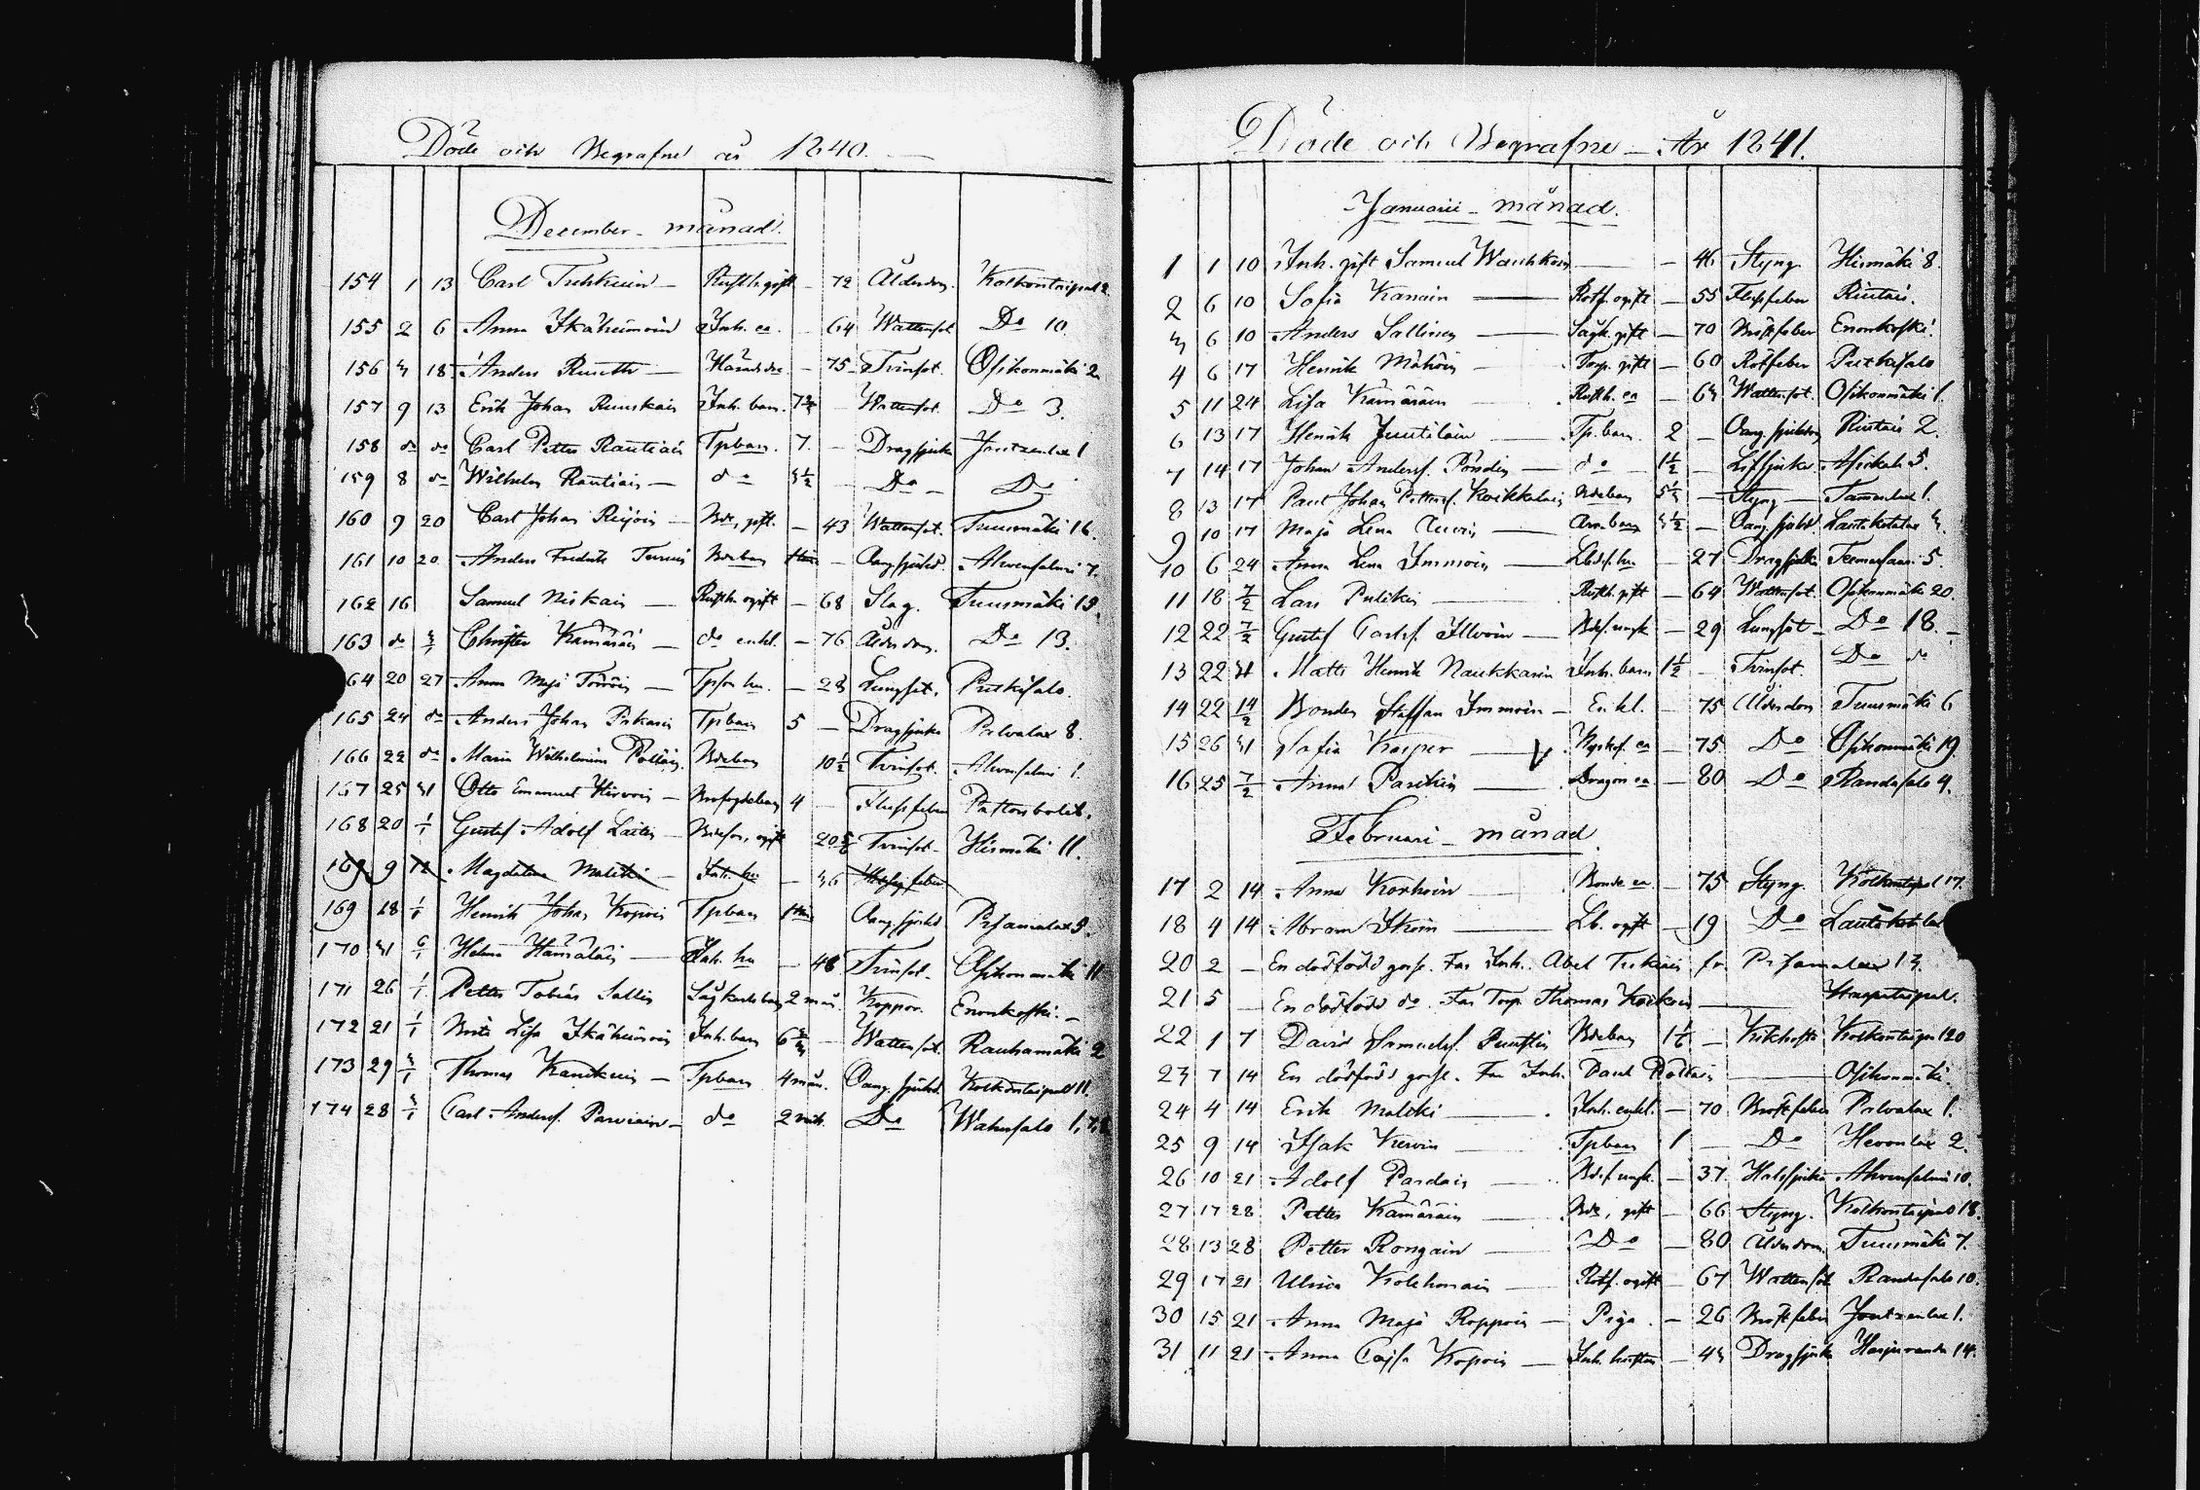 Döde och Begrafne år 1840.
December månad.
154 1 13 Carl Tuhkuin — Rusth. gift — 72 Ålderdom Kolkontaipal 2
155 2 6 Anna Ikäheimoin Inh. ea — 64 Wattensot Do 10.
156 3 18 Anders Ruuth — — 75 Tvinsot. Osikonmäki 2
157 9 13 Erik Johan Ruuskain Inh. barn — Wattensot. Do 3.
158 do do Carl Petter Rautiain Tpbarn. 7. — Dragsjuka Joutzenlax 1
159 8 do Wilhelm Rautiain — do 3½ — Do — Do
160 9 20 Carl Johan Reijoin — Bde, gift. — 43 Wattensot. Tuusmäki 16.
161 10 20 Anders Fredrik Turuin Bdebarn — Oang. sjukd. Ahvensalmi 7.
162 16 Samuel Niskain — Rusth. ogift — 68 Slag. Tuusmäki 19.
163 do 3/1 Christer Kämäräin — do enkl. — 76 Ålderdom. Do 13.
64 20 27 Anna Maja Toiviain — — 28 Lungsot. Partasalo.
165 24 do Anders Johan Pitkänen Tpbarn 5 — Dragsjuka Palvalax 8.
166 22 do Maria Wilhelmina Pöllän. Bdebarn 10½ Tvinsot. Ahvensalmi 1.
167 25 31 Otto Emanuel Hirvoin — 4 — Flussfeber
168 20 1/1 Gustaf Adolf Laitin — Bdeson, ogift 20 Tvinsot — Hirmäki 11.
169 9 12 Magdalena Malkki — Inh. hu — 36
169 18 1/1 Henrik Johan Kopoin Tpbarn Oang. sjukd Pisamalax 9.
170 31 6/1 Helena Hämäläin — Inh. hu — 48 Tvinsot — Osikonmäki 11
171 26 1/1 Petter Tobias Sallin 2 mån Koppor. Enonkoski. —
172 21 1/1 Brita Lisa Ikäheimoin Inh. barn 6 — Wattensot. Rauhamäki 2
173 29 3/1 Thomas Kauckuin — Tpbarn 4 mån. Oang. sjukd. Kolkontaipal 11.
174 28 3/1 Carl Andersf. Parviain — do 2 vik. Do Wahnsalo 1,
Döde och Begrafne — År 1841.
Januarii — månad.
1 1 10 Inh. gift Samuel Wauhkoin — — 46 Styng. Hirmäki 8.
2 6 10 Sofia Kanain — Rotf. ogift — 55 Flussfeber Rintais.
3 6 10 Anders Sallinen — Sågk. gift — 70 Bröstfeber Enonkoski.
4 6 17 Henrik Mähöin — Torp. gift — 60 Rötfeber Partasalo
5 11 24 Lisa Kämäräin — Rusth. ea — 63 Wattensot. Osikonmäki 1.
6 13 17 Henrik Juutilain — Tp. barn 2 — Oang. sjukdom Rintais 2.
7 14 17 Johan Andersf. Pöndin — do 1½ — 5.
8 13 17 Paul Johan Pettersf. Koikkalain Bdebarn — Styng — 1.
9 10 17 Maja Lena Auvin — 3½ — Oang. sjukd. Lautakotalax 3.
10 6 24 Anna Lena Immoin — — 27 Dragsjuka 5.
11 18 7/2 Lars Pulkkin — Rusth. gift — 64 Wattensot. Osikonmäki 20.
12 22 7/2 Gustaf Carlsf. Illvoin — Bdes. ungk. — 29 Lungsot — Do 18. —
13 22 31 Matts Henrik Naukkarin Inh. barn 1½ — Tvinsot. Do do
14 22 14/2 Bonden Staffan Immoin — Enkl. — 75 Ålderdom Tuusmäki 6
15 26 31 Sofia Kasper — Nyskf. ea — 75 Do Osikonmäki 19.
16 25 7/2 Anna Paschin — Dragon ea — 80 Do Randasalo 4.
Februari — månad.
17 2 14 Anna Korhoin — Bonde ea — 75 Styng. Kolkontaipal 17.
18 4 14 Abram Ikoin — Lb. ogift — 19 Do Lautakotalax
20 2 — En dödfödd gosse. Far Inh. Abel Tiskiain fr. Pisamalax 13.
21 5 — En dödfödd do. Far Torp. Thomas Koikoin — Haapataipal.
22 1 7 David Samuelsf. Purstin Bdebarn — Kikhosta Kolkontaipal 20
23 7 14 En dödfödd gosse. Far Inh. Paul Pöllain — Osikonmäki.
24 4 14 Erik Malkki — Inh. enkl. — 70 Bröstfeber Palvalax 1.
25 9 14 Isak Kurvin — Tpbarn 1 — Do Hevonlax 2.
26 10 21 Adolf Pardain — Bdef. ungk. — 37 Halssjuka Ahvensalmi 10.
27 17 28 Petter Kämäräin — Bde, gift — 66 Styng. Kolkontaipal 18.
28 13 28 Petter Rongain — Do — 80 Ålderdom Tuusmäki 7.
29 17 21 Ulrica Kolehmain — Rotf. ogift — 67 Wattensot Randasalo 10.
30 15 21 Anna Maja Roppoin — Piga — 26 Bröstfeber Joutzenlax 1.
31 11 21 Anna Cajsa Kopoin — Inh. hustru — 43 Dragsjuka Harjuranda 14.